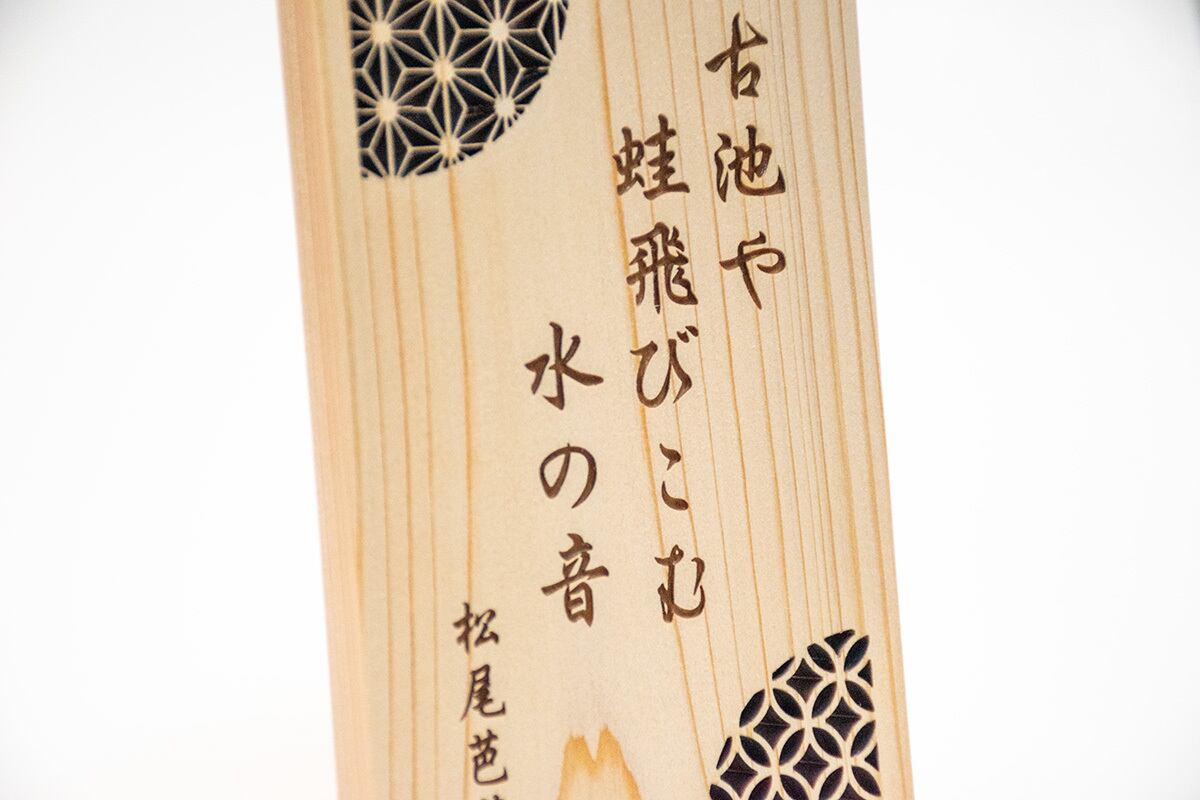 古池や
蛙飛びこむ
水の音
松尾芭